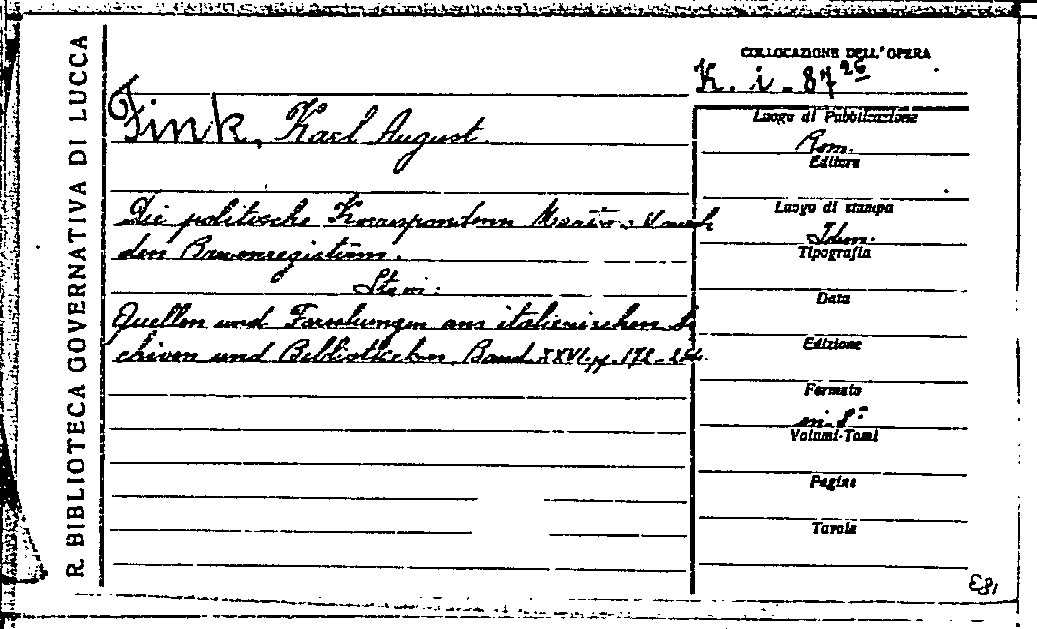 R. BIBLIOTECA GOVERNATIVA DI LUCCA
COLLOCAZIONE DELL'OPERA
K. i - 87 26
Fink, Karl August
Die politische Korrespondenz Martins V nach
den Brevenregistern.
Sta in:
Quellen und Forschungen aus italienischen Ar
chiven und Bibliotheken. Band XXVI pp. 172-244.
Luogo di Pubblicazione
Rom.
Editore
Luogo di stampa
Idem.
Tipografia
Data
Edizione
Formato
in-8°
Volumi-Tomi
Pagine
Tavole
E81